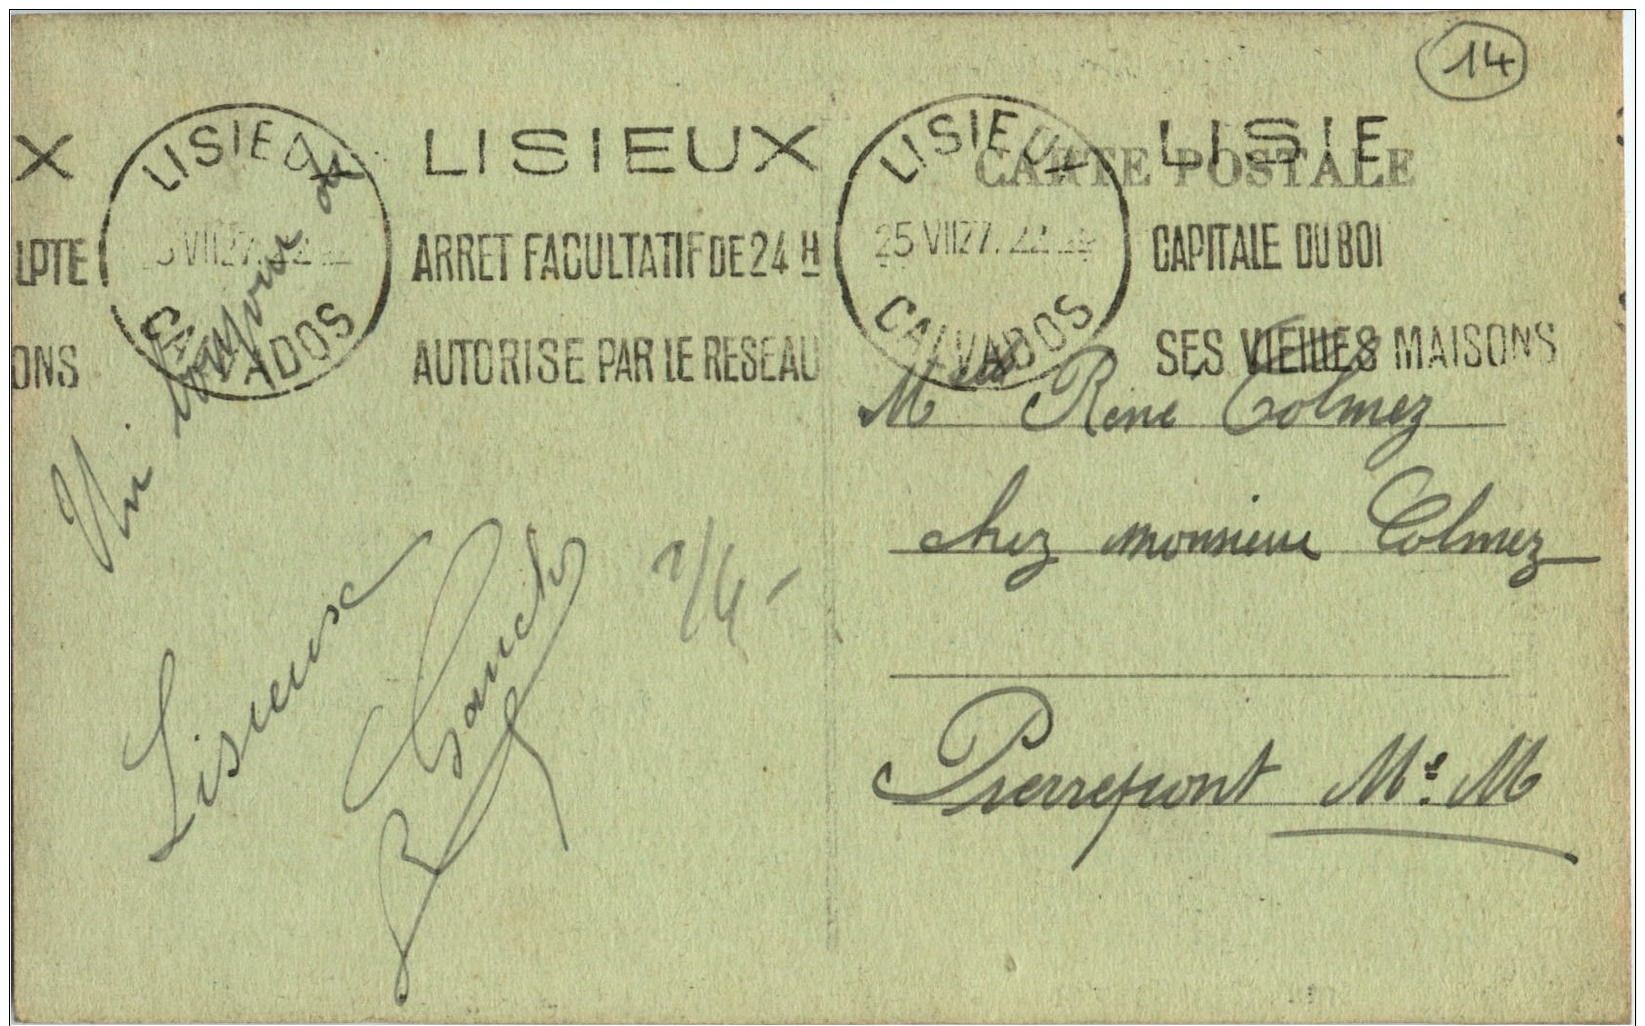 14
X LISIEUX LISIEUX LISIEUX LISIE
CARTE POSTALE
LPTE 25 VII27. 22 ARRET FACULTATIF DE 24 H 25 VII27. 22 CAPITALE DU BOI
ONS CALVADOS AUTORISE PAR LE RESEAU CALVADOS SES VIEILLES MAISONS
Un bonjour de
Lisieux
M René Colmez
chez monsieur Colmez
Pierrepont Mᵉ. M
1/4 -